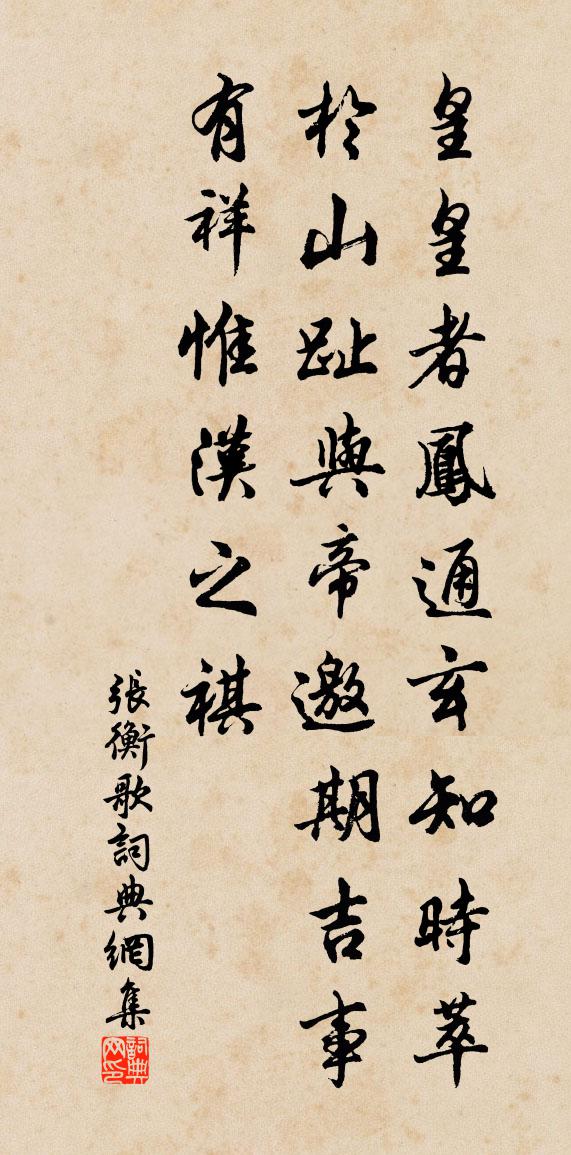 皇皇者鳳通玄知時萃
於山趾與帝邀期吉事
有祥惟漢之祺
張衡歌詞典網集
詞典网印